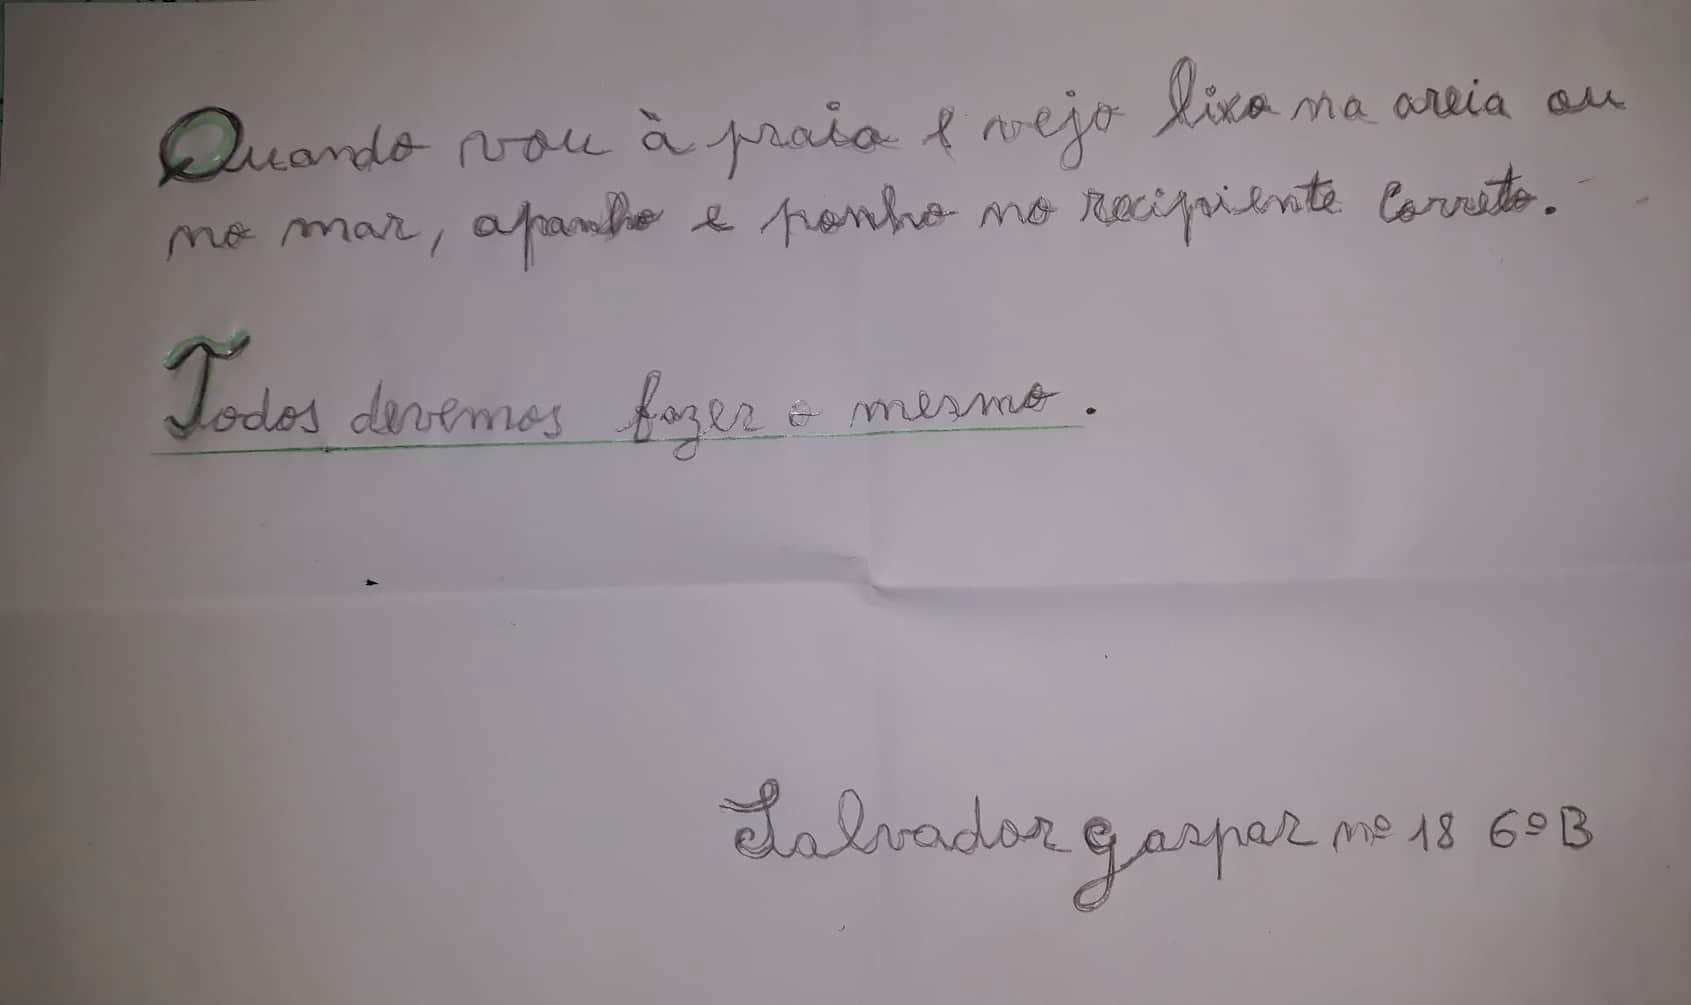 Quando vou à praia e vejo lixo na areia ou
no mar, apanho e ponho no recipiente correto.
Todos devemos fazer o mesmo.
Salvador gaspar nº 18 6º B